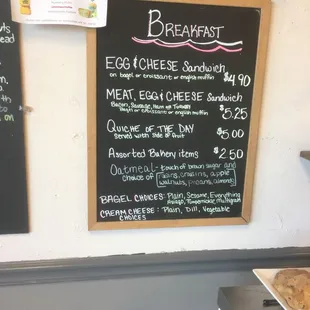 BREAKFAST
EGG & CHEESE Sandwich
on bagel or croissant or english muffin
$4.90
MEAT, EGG & CHEESE Sandwich
Bacon, Sausage, Ham or
Bagel or croissant or english muffin
$5.25
QUICHE OF THE DAY
Served with side of fruit
$5.00
Assorted Bakery items $2.50
Oatmeal - touch of brown sugar and
choice of raisins, apple
walnuts, pecans, almonds
BAGEL CHOICES: Plain, Sesame, Everything
Asiago, multigrain
CREAM CHEESE: Plain, Dill, Vegetable
CHOICES